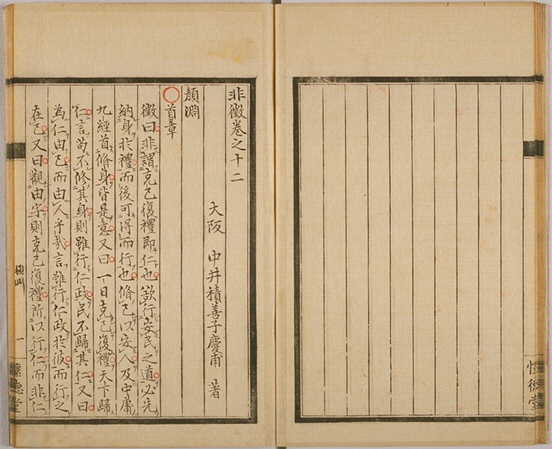 非徴巻之十二
大阪 中井積善子慶甫 著
顔淵
首章
徴曰非謂克己復禮即仁也欲行安民之道必先
納身於禮而後可得而行也脩己以安人及中庸
九經首脩身皆是意又曰一日克己復禮天下歸
仁言苟不脩其身則雖行仁政民不歸其仁又曰
為仁由己而由人乎哉言雖行仁政於彼而行之
在己又曰觀由字則克己復禮所以行仁而非仁
顔淵
一
懐徳堂
懐徳堂